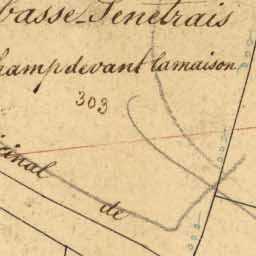 basse Senetrais
hamp devant la maison
303
cinal
de